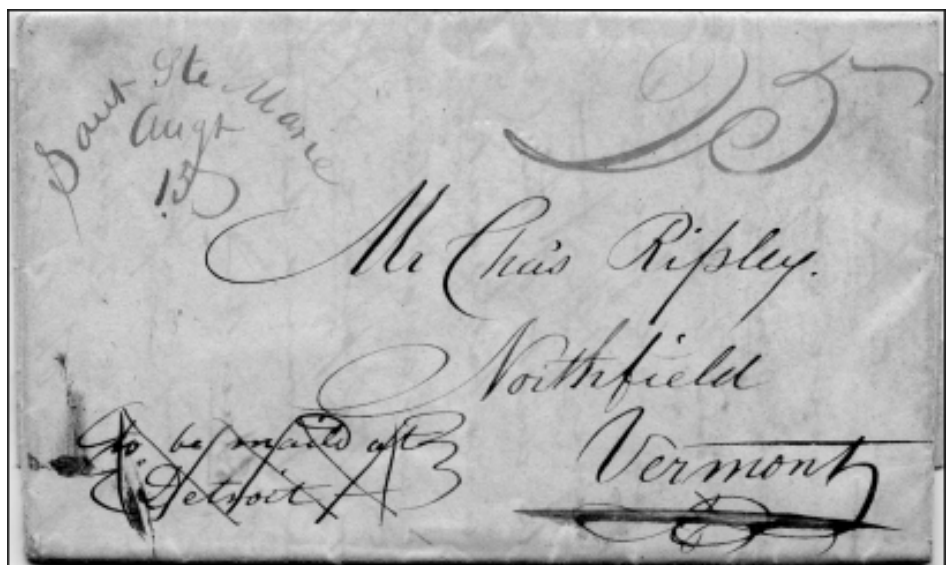 Saut Ste Marie
Augt
15
25
Mr Chas Ripley.
Northfield
Vermont
to be maild at
Detroit